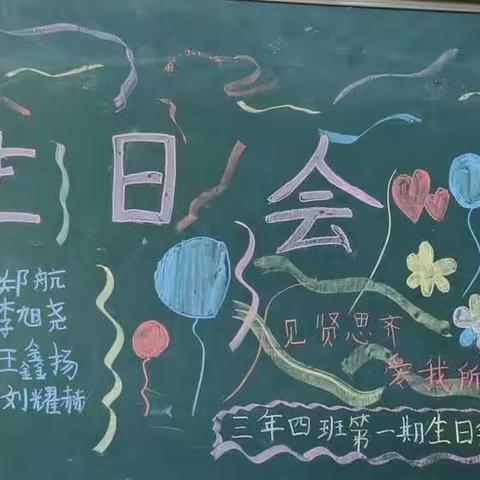 生日会
郑航
李旭尧
王鑫扬
刘耀赫
见贤思齐
爱我所
三年四班第一期生日会